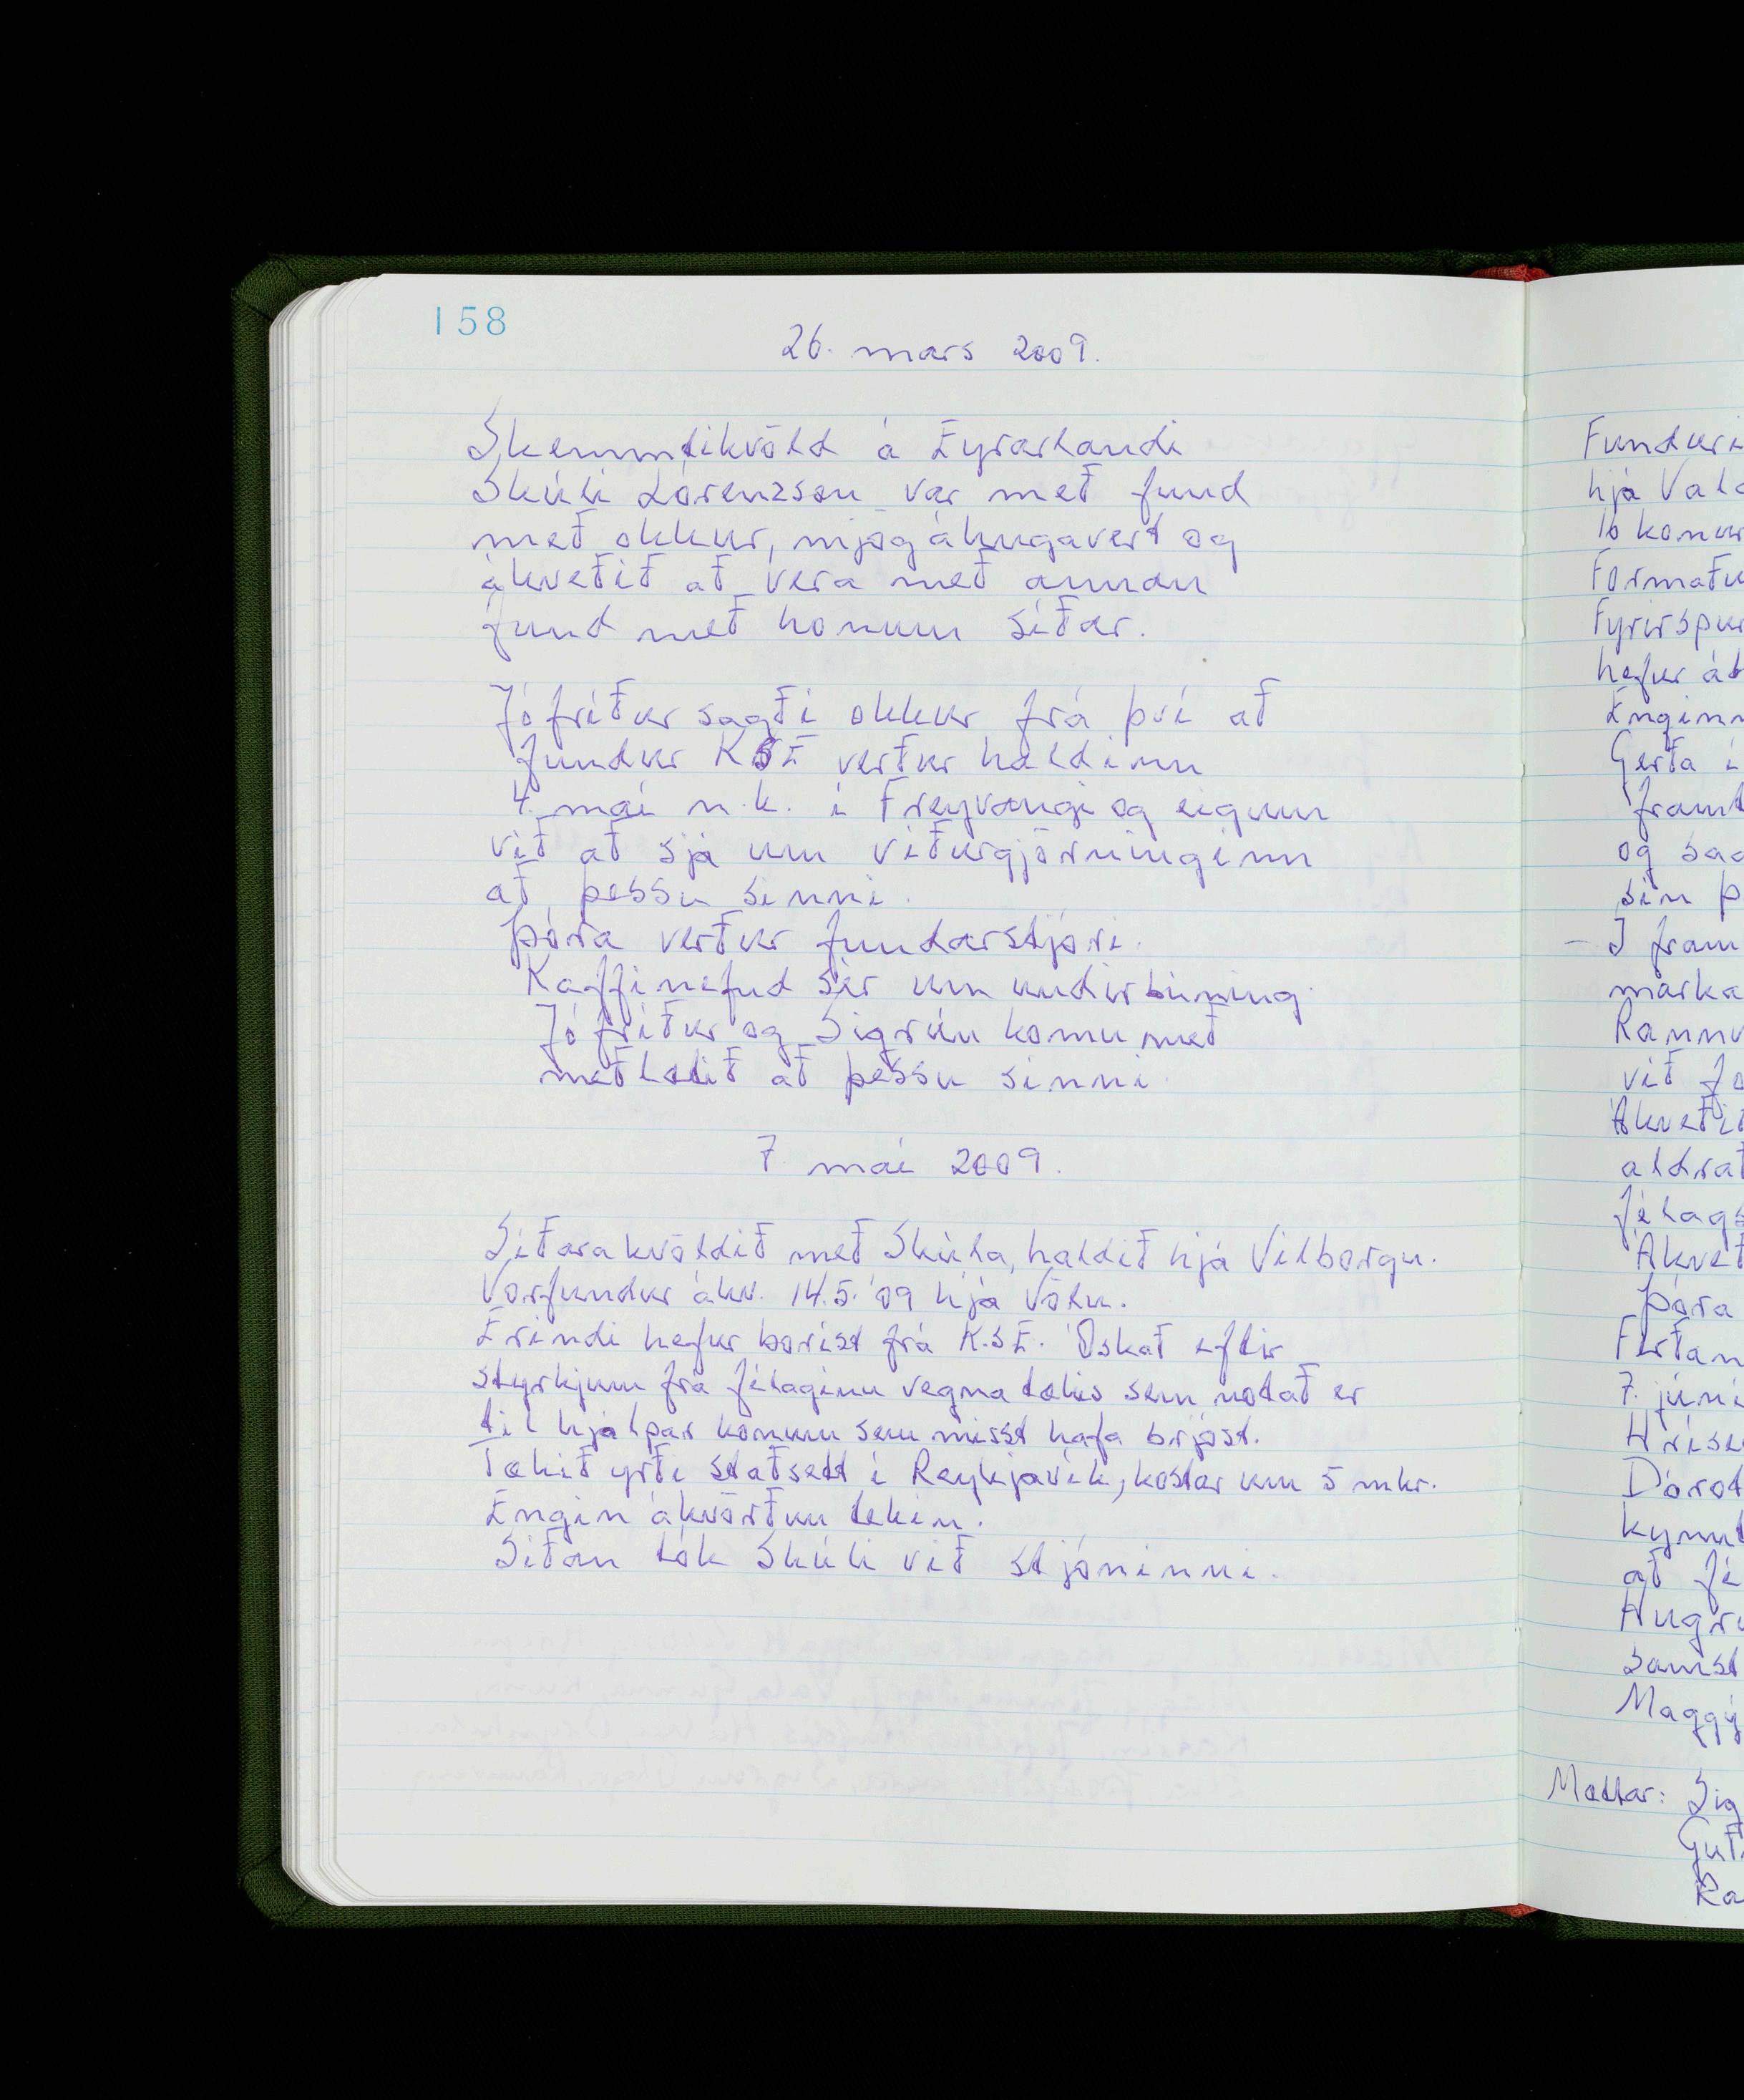 158
26. mars 2009.
Skemmtikvöld á Eyrarlandi
Skúli Lórenzson var með fund
með okkur, mjög áhugavert og
ákveðið að vera með annan
fund með honum síðar.
Jófríður sagði okkur frá því að
fundur KSE verður haldinn
4. maí n.k. í Freyvangi og eigum
við að sjá um viðurgjörninginn
að þessu sinni.
Þóra verður fundarstjóri.
Kaffinefnd sér um undirbúning
Jófríður og Sigrún komu með
meðlætið að þessu sinni.
7. maí 2009.
Síðara kvöldið með Skúla, haldið hjá Vilborgu.
Vorfundur ákv. 14.5.'09 hjá Völu.
Erindi hefur borist frá K.S.E. Óskað eftir
styrkjum frá félaginu vegna tækis sem notað er
til hjálpar konum sem misst hafa brjóst.
Tækið yrði staðsett í Reykjavík, kostar um 5 mkr.
Engin ákvörðun tekin.
Síðan tók Skúli við stjórninni.
Funduri
hjá Val
16 konur
Formaðu
Fyrirspur
hefur áh
Enginn
Gerða í
framt
og sag
sín þ
- Í fram
marka
Rannv
við fo
Ákveðið
aldrað
félags
Ákveð
Þóra
Ferðan
7. júní
Hríse
Dórot
kynnt
að fé
Hugrú
samst
Maggý
Mættar: Sig
Guð
Ra